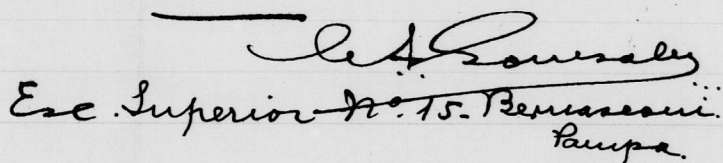 Gonzalez
Esc. Superior Nº. 15. Bernasconi.
Pampa.